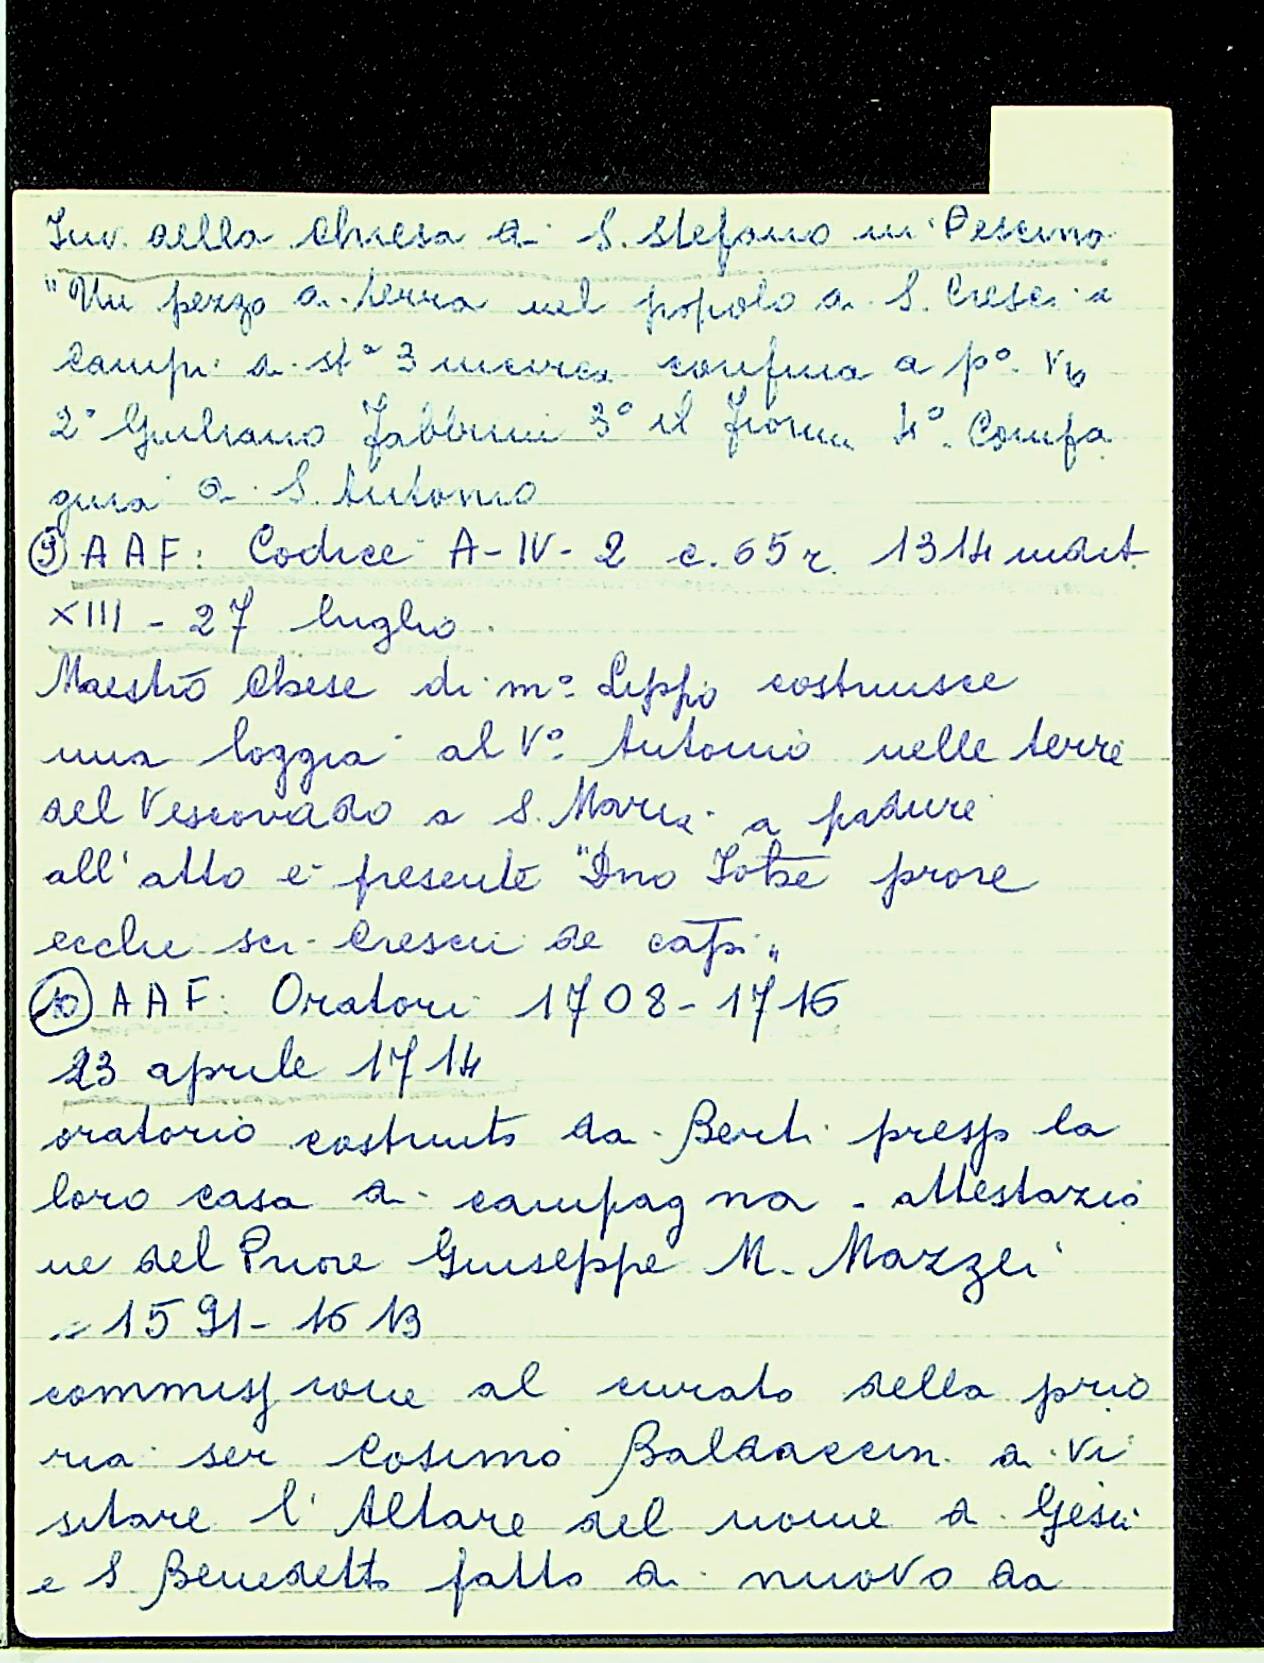 Inv. della Chiesa di S. Stefano in Pescina
"Un pezzo di terra nel popolo di S. Cresci a
Campi di st.a 3 incirca confina a p.o
2° Giuliano Fabbrini 3° il fiume 4° Compa
gnia di S. Antonio
⑨ AAF: Codice A-IV-2 c. 65 r. 1314 indit.
XIII - 27 luglio.
Maestro Chese di m° Lippo costruisce
una loggia al V° Antonio nelle terre
del Vescovado a S. Maria a padure
all'atto è presente "Dno priore
ecclie sci Cresci de capi"
⑩ AAF: Oratori 1708-1716
23 aprile 1714
oratorio costruito da Berti presso la
loro casa di campagna - attestazio
ne del Priore Giuseppe M. Mazzei
= 1591-1613
commissione al curato della prio
ria ser Cosimo Baldaccini di vi
sitare l'Altare del nome di Gesù
e S Benedetto fatto di nuovo da